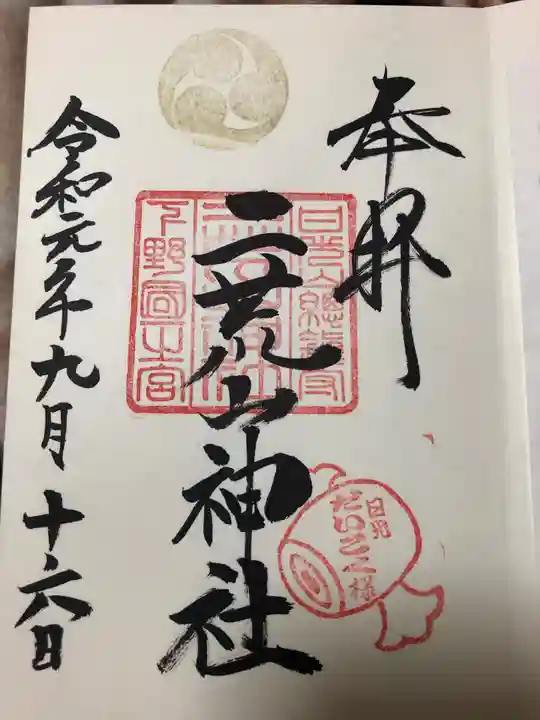 奉拝
日光總鎮守
二荒山神社
下野國一之宮
日光
だいこく様
令和元年九月十六日